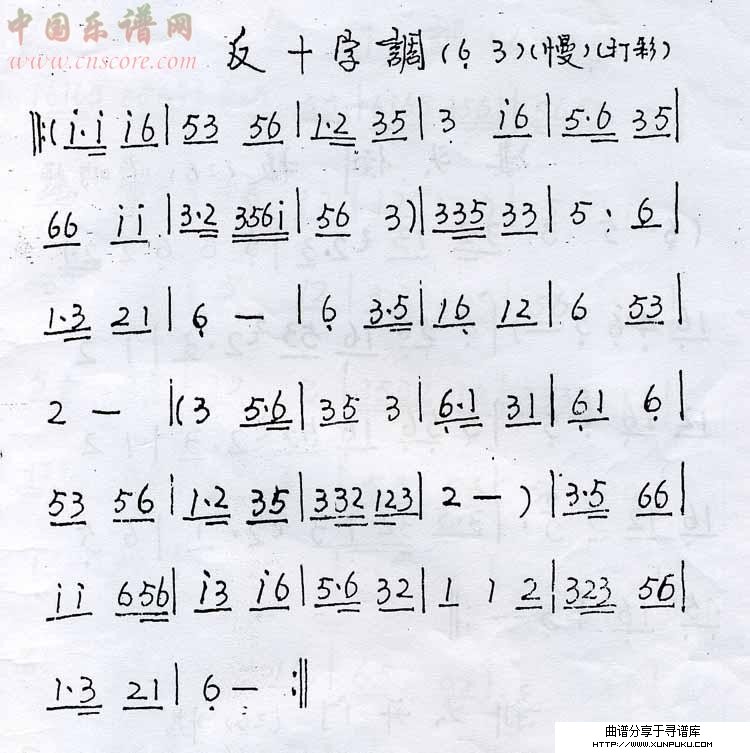 中国乐谱网
www.cnscore.com
反十字調(6̣ 3)(慢)(打彩)
‖:(i·i i6|53 56|1·2 35|3 i6|5·6 35|
66 ii|3·2 356i|56 3)|335 33|5· 6|
1·3 21|6̣ —|6̣ 3·5|16̣ 12|6 53|
2 —|(3 5·6|35 3|6̣·1 31|6̣1 6̣|
53 56|1·2 35|332 123|2—)|3·5 66|
ii 656|i3 i6|5·6 32|1 1 2|323 56|
1·3 21|6̣ — :‖
曲谱分享于寻谱库
HTTP://WWW.XUNPUKU.COM